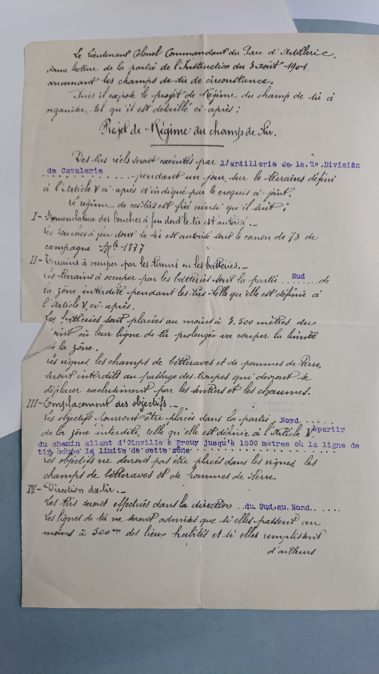 Le Lieutenant Colonel Commandant du Parc d'Artillerie,
donne lecture de la partie de l'Instruction du 3 août 1901
concernant les champs de tir de circonstance.
Puis il expose le projet de Régime du champ de tir à
organiser, tel qu'il est détaillé ci-après:
Projet de Régime du champ de tir.
Des tirs réels seront exécutés par l'artillerie de la 7e.Division
de Cavalerie ........ pendant un jour, sur le terrains défini
à l'Article V ci-après et indiqué par le croquis ci-joint.
Le régime de ces tirs est fixé ainsi qu'il suit:
I- Nomenclature des bouches à feu dont le tir est autorisé.-
Les bouches à feu dont le tir est autorisé sont le canon de 75 de
campagne Mle 1897
II- Terrains à occuper par les Troupes ou les batteries.-
Les terrains à occuper par les batteries sont la partie Sud ...... de
la zône interdite pendant les tirs telle qu'elle est définie à
l'Article V, ci-après.
Les batteries sont placées au moins à 2.500 mètres du
point où leur ligne de tir prolongée va couper la limite
de la zône.
Les vignes, les champs de betteraves et de pommes de terre
seront interdits au passage des troupes qui devront se
déplacer exclusivement par les sentiers et les chaumes.
III- Emplacement des objectifs.-
Les objectifs pourront être placés dans la partie Nord ......
de la zône interdite, telle qu'elle est définie à l'Article V à partir
du chemin allant d'Oinville à Brouy jusqu'à 1500 mètres où la ligne de
tir coupe la limite de cette zône ------
Les objectifs ne devront pas être placés dans les vignes, les
champs de betteraves et de pommes de terre.
IV- Direction du tir.-
Les tirs seront effectués dans la direction .du Sud.au Nord.....
Les lignes de tir ne seront admises que si elles passent au
moins à 500m des lieux habités et si elles remplissent
d'ailleurs